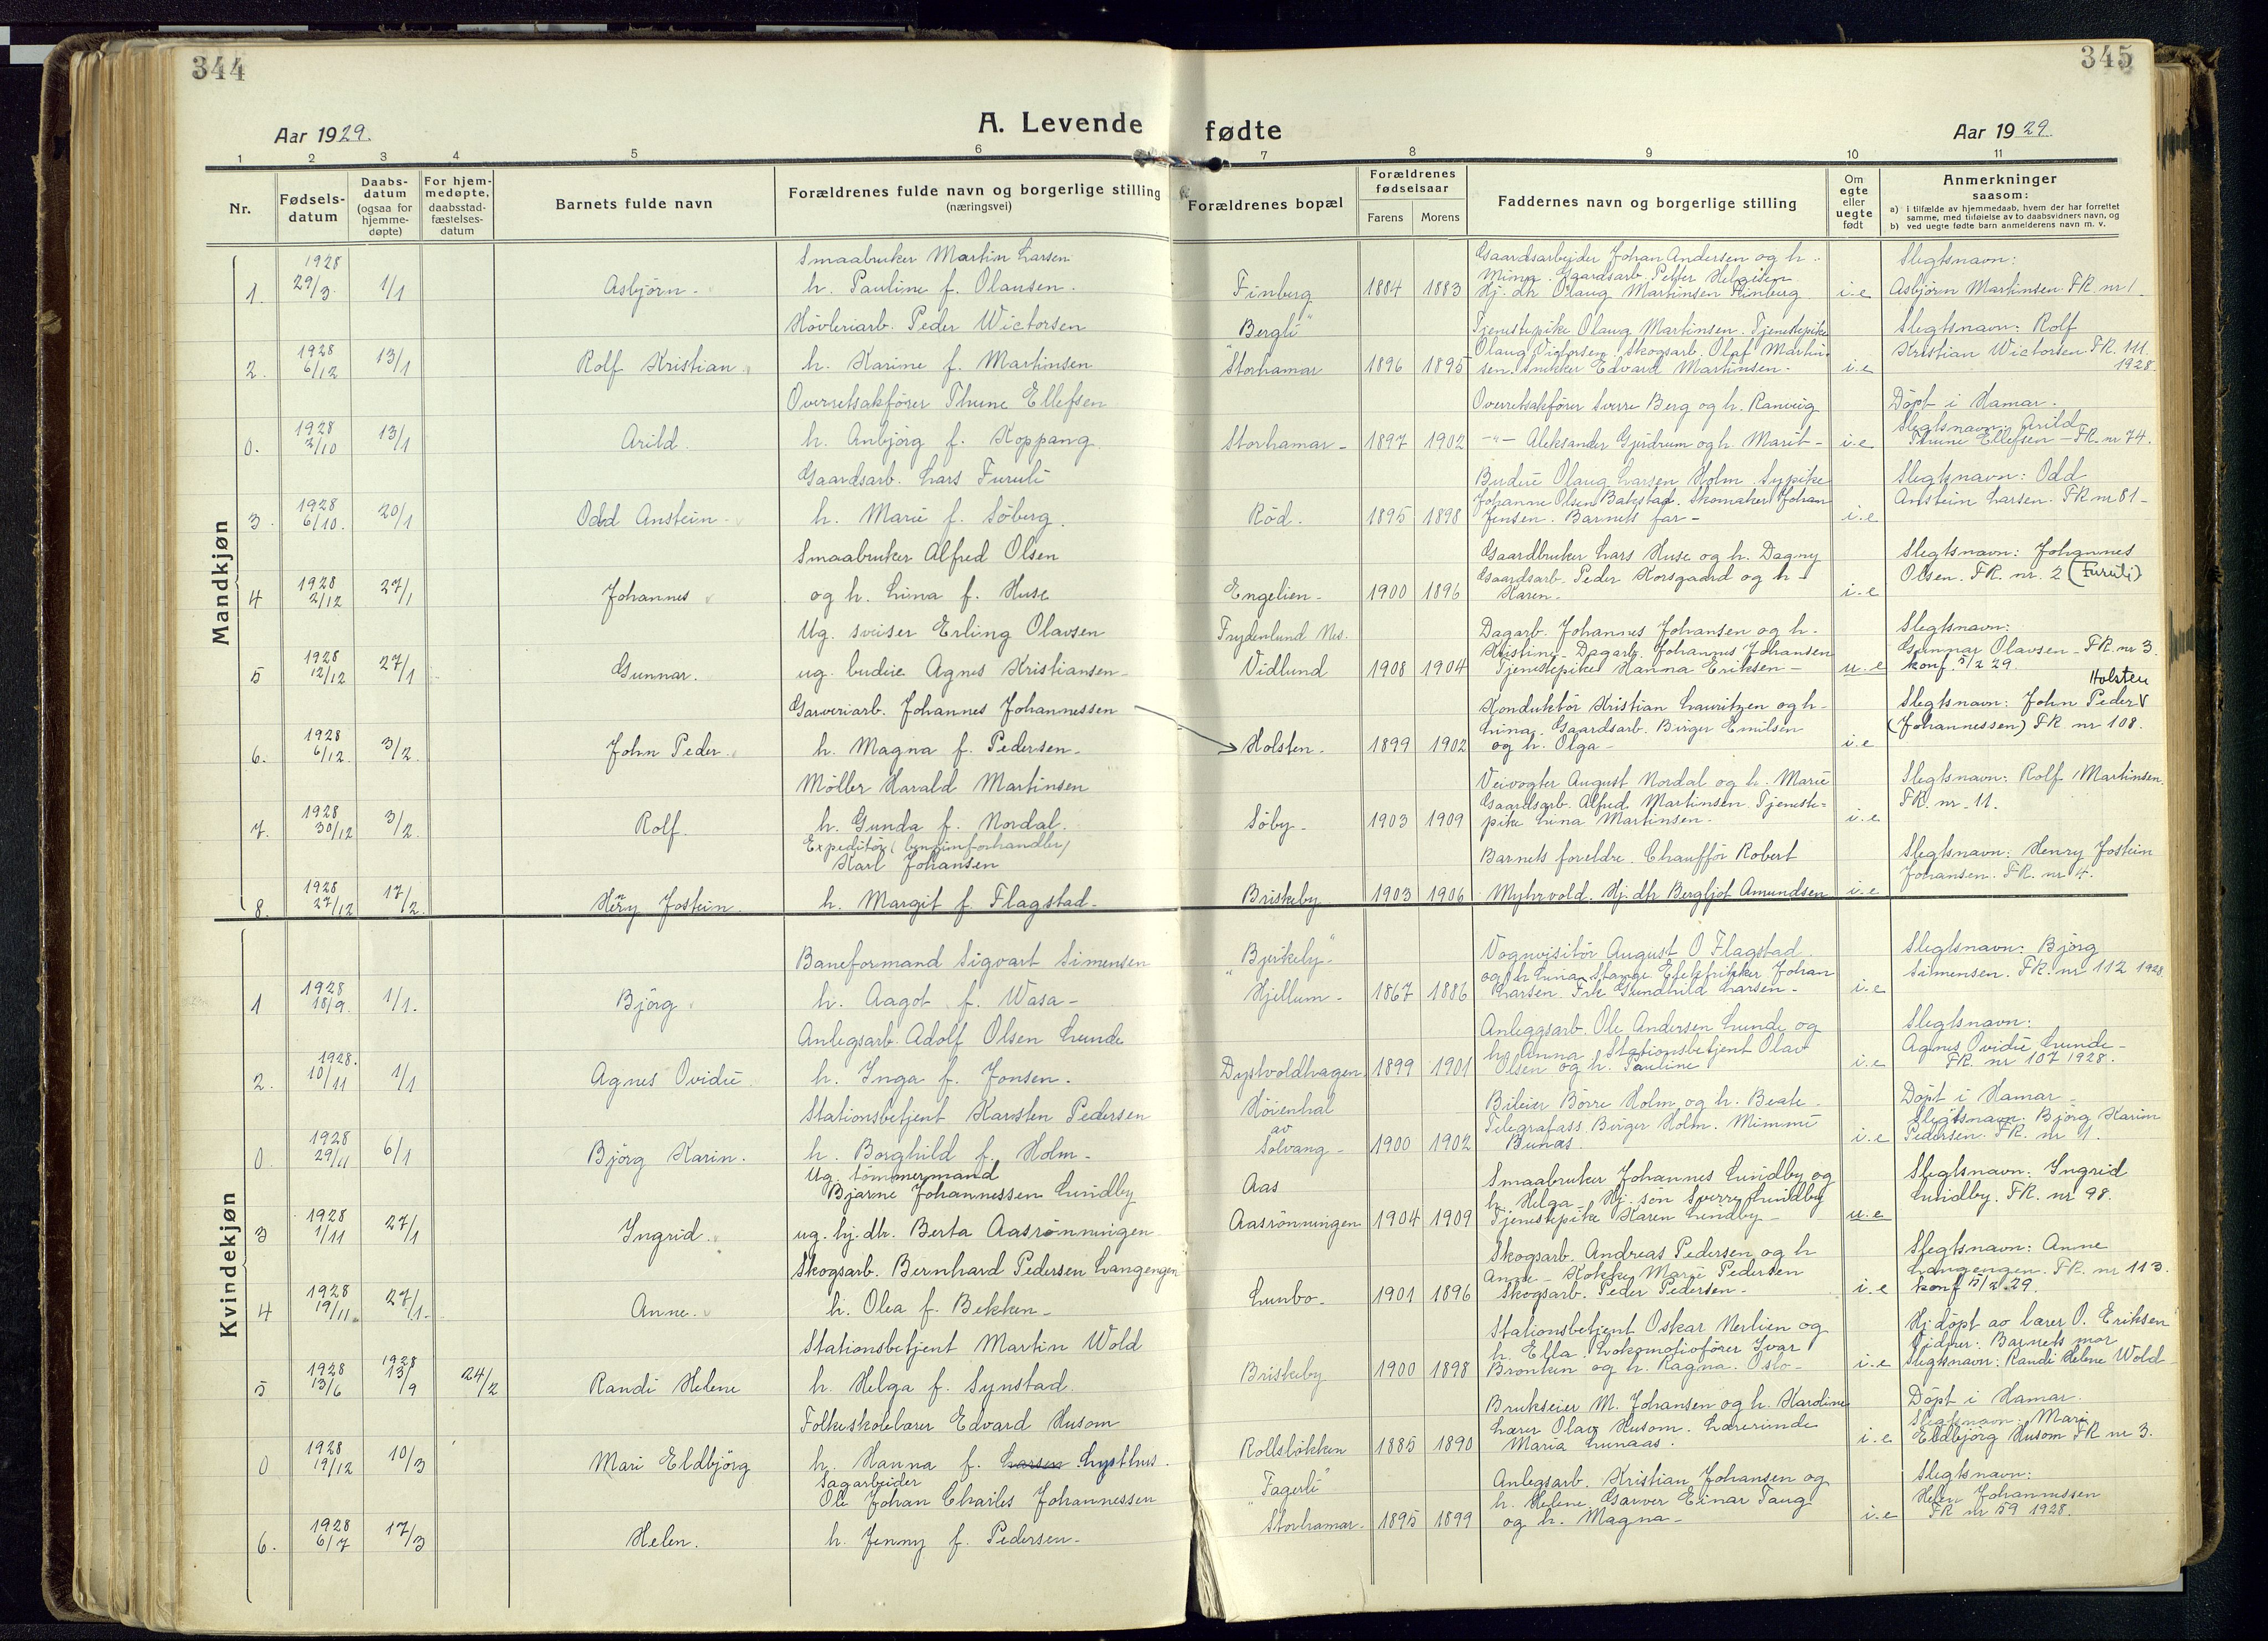 344
345
Aar 1929.
A. Levende fødte
Aar 1929.
1 2 3 4 5 6 7 8 9 10 11
Nr.
Fødsels-
datum
Daabs-
datum
(ogsaa for
hjemme-
døpte)
For hjem-
medøpte,
daabsstad-
fæstelses-
datum
Barnets fulde navn
Forældrenes fulde navn og borgerlige stilling
(næringsvei)
Forældrenes bopæl
Forældrenes
fødselsaar
Farens Morens
Faddernes navn og borgerlige stilling
Om
egte
eller
uegte
født
Anmerkninger
saasom:
a) i tilfælde av hjemmedaab, hvem der har forrettet
samme, med tilføielse av to daabsvidners navn, og
b) ved uegte fødte barn anmelderens navn m. v.
Mandkjøn
1. 1928 29/3. 1/1 Asbjørn.
Smaabruker Martin Larsen
h. Pauline f. Olausen.
Finberg 1884 1883
Gaardsarbejder Johan Andersen og h.
Mina. Gaardsarb. Petter Helgesen
Hj. dtr Olaug Martinsen Finberg
i.e
Slegtsnavn:
Asbjørn Martinsen FR. nr 1
2. 1928 6/12 13/1 Rolf Kristian
Høvleriarb. Peder Wictorsen
h. Karine f. Martinsen
"Bergli"
Storhamar 1896 1895
Tjenestepike Olaug Martinsen. Tjenestepike
Olaug Victorsen. Skogsarb. Olaf Martin-
sen. Snikker Edvard Martinsen.
i.e
Slegtsnavn: Rolf
Kristian Wictorsen FR. 111.
1928
0. 1928 2/10 13/1 Arild.
Overretsakfører Thune Ellefsen
h. Anbjørg f. Koppang
Storhamar 1897 1902
Overretsakfører Sverre Berg og h. Ranveig
-"- Aleksander Gjerdrum og h. Marit
i.e
Døpt i Hamar.
Slegtsnavn: Arild
Thune Ellefsen - FR. nr 74.
3. 1928 6/10. 20/1 Odd Anstein.
Gaardsarb. Lars Furuli
h. Marie f. Søberg.
Rød. 1895 1898
Budeie Olaug Larsen Holm. Sypike
Johanne Olsen Bakstad. Skomaker Johan
Jensen. Barnets far
i.e
Slegtsnavn: Odd
Anstein Larsen. FR nr 81
4 1928 2/12 27/1 Johannes
Smaabruker Alfred Olsen
og h. Lina f. Huse
Engelien 1900 1896
Gaardbruker Lars Huse og h. Dagny
Gaardsarb. Peder Korsgaard og h
Karen
i.e
Slegtsnavn: Johannes
Olsen. FR. nr. 2 (Furuli)
5 1928 12/12 27/1 Gunnar.
Ug. sveiser Erling Olavsen
ug. budeie Agnes Kristiansen
Frydenlund Nes.
Vidlund 1908 1904
Dagarb. Johannes Johansen og h.
Kristine Dagarb. Johannes Johansen
Tjenestepike Hanna Eriksen
u.e
Slegtsnavn:
Gunnar Olavsen - FR. nr 3.
konf. 5/2 29.
6. 1928 6/12. 3/2. John Peder.
Garveriarb. Johannes Johannessen
h. Magna f. Pedersen.
Holsten 1899 1902
Konduktør Kristian Lauritzen og h
Lina. Gaardsarb. Birger Emilsen
og h. Olga
i.e
Holsten
Slegtsnavn: John Peder V
(Johannessen) FR. nr 108.
7. 1928 30/12 3/2. Rolf.
Møller Harald Martinsen
h. Gunda f. Nordal.
Søby 1903 1909
Veivogter August Nordal og h. Marie
Gaardsarb. Alfred Martinsen. Tjeneste-
pike Lina Martinsen.
i.e
Slegtsnavn: Rolf Martinsen
FR. nr. 11.
8. 1928 27/12 17/2. Henry Jostein.
Expeditør (bensinforhandler)
Karl Johansen
h. Margit f. Flagstad.
Briskeby 1903 1906
Barnets foreldre. Chauffør Robert
Myhrvold. Hj. dtr Bergljot Amundsen
i.e
Slegtsnavn: Henry Jostein
Johansen. FR. nr 4.
Kvindekjøn
1 1928 18/9. 1/1. Bjørg
Baneformand Sigvart Simensen
h. Aagot f. Wasa
"Bjerkely"
Hjellum 1867 1886
Vognvisitør August O Flagstad
og h Lina, Stange Johan
Larsen. Frk Gundhild Larsen
i.e
Slegtsnavn: Bjørg
Simensen. FR. nr 112 1928
2. 1928. 10/11 1/1 Agnes Ovidie
Anlegsarb. Adolf Olsen Lunde
h. Inga f. Jonsen.
Dystvoldhagen 1899 1901
Anleggsarb. Ole Andersen Lunde og
h. Anna. Stationsbetjent Olav
Olsen og h. Pauline
i.e
Slegtsnavn:
Agnes Ovidie Lunde
FR. nr 107 1928.
0 1928 29/11 6/1 Bjørg Karin.
Stationsbetjent Karsten Pedersen
h. Borghild f. Holm
Høienhal
av
Solvang 1900 1902
Bileier Børre Holm og h. Beate
Telegrafass. Birger Holm. Mimmi
Bunæs
i.e
Døpt i Hamar
Slegtsnavn: Bjørg Karin
Pedersen. FR. nr 1.
3 1928 1/11 27/1 Ingrid.
Ug. tømmermand
Bjarne Johannessen Lundby
ug. hj. dtr. Berta Aasrønningen
Aas
Aasrønningen 1904 1909
Smaabruker Johannes Lundby og
h. Helga. Hj. søn Sverre Lundby
Tjenestepike Karen Lundby
u.e
Slegtsnavn: Ingrid
Lundby. FR. nr 98.
4 1928 19/11. 27/1. Anne.
Skogsarb. Bernhard Pedersen Langengen
h. Olea f. Bekken
Lunbo 1901 1896
Skogsarb. Andreas Pedersen og h
Anne. Kokke Marie Pedersen
Skogsarb. Peder Pedersen.
i.e
Slegtsnavn: Anne
Langengen. FR. nr 113.
konf 5/2.29.
5 1928 13/6 1928 13/9 24/2 Randi Helene
Stationsbetjent Martin Wold
h. Helga f. Synstad.
Briskeby 1900 1898
Stationsbetjent Oskar Nerlien og
h. Ella. Lokomotivfører Ivar
Bronken og h. Ragna. Oslo
i.e
Hj døpt av lærer O. Eriksen
Vidner: Barnets mor
Slegtsnavn: Randi Helene Wold
0 1928 19/12 10/3 Mari Eldbjørg
Folkeskolelærer Edvard Husom
h. Hanna f. Larsen Lysthus.
Rollsløkken 1885 1890
Brukseier M. Johansen og h. Karoline
Lærer Olav Husom. Lærerinde
Maria Lunaas.
i.e
Døpt i Hamar.
Slegtsnavn: Mari
Eldbjørg Husom FR nr 3.
6. 1928 6/7 17/3 Helen.
Sagarbeider
Ole Johan Charles Johannessen
h. Jenny f. Pedersen.
"Fagerli"
Storhamar 1895 1899
Anlegsarb. Kristian Johansen og
h. Helene. Garver Einar Taug
og h. Magna
i.e
Slegtsnavn:
Helen Johannessen
FR nr 59 1928.